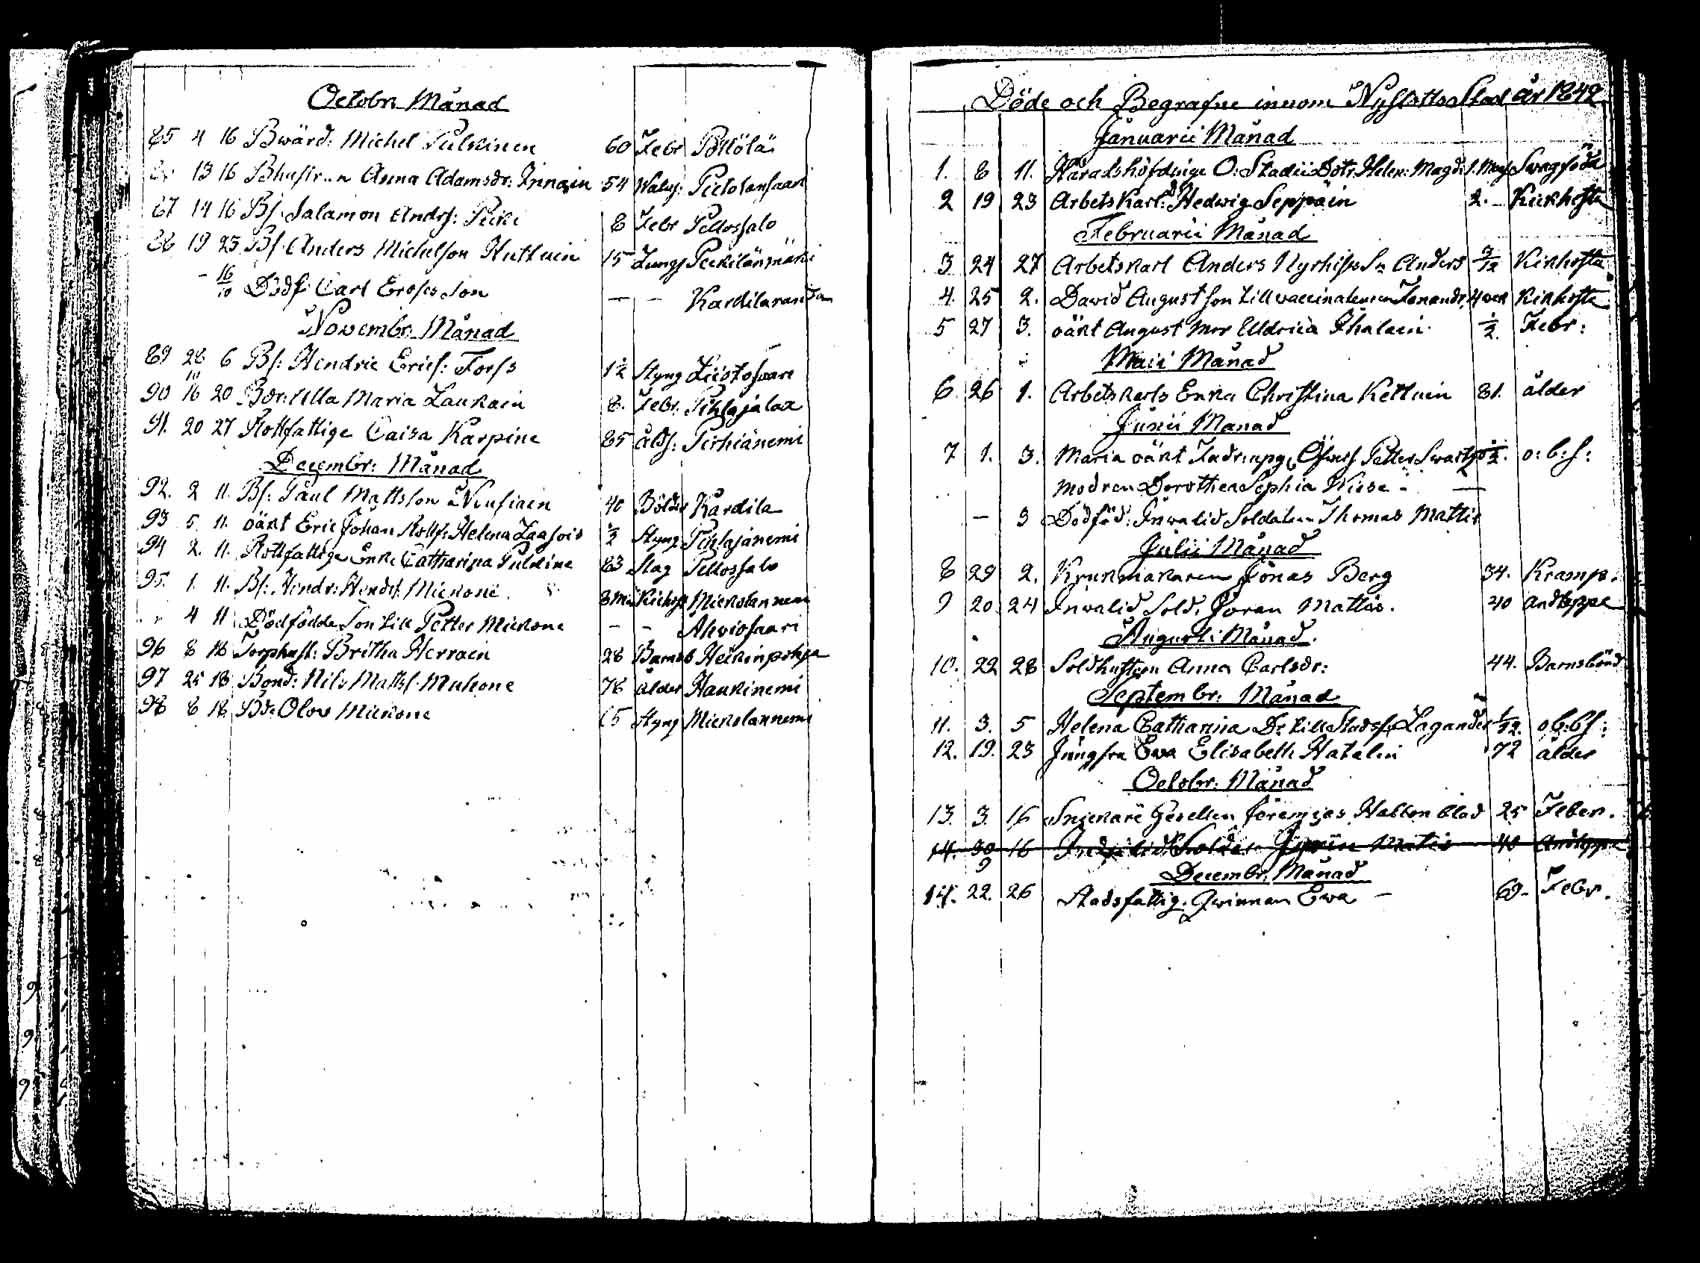 Octobr. Månad
85 4 16 Bwärd: Michel Pulkinen 60 Febr Pellölä
13 16 Bhustrun Anna Adamsdr: Innain 54 Pietolansaari
87 14 16 Bs. Salamon Andrs: 8 Febr Pellossalo
88 19 23 Bs. Anders Michelson Huttuin 15 Lungs
– 16/10 Dödf: Carl Erossos Son – – Karvilaranda
Novembr. Månad
89 28 6 Bs: Hendric Erics: Forss 1½ Styng Liistosaari
90 16 20 Bdr: Ulla Maria Laukain 8. Febr. Pihlajalax
91. 20 27 Rottfattige Caisa Karpine 85 ålds: Pirhiänemi
Decembr: Månad
92. 2 11. Bs: Påul Mattsson Nousiaen 40 Bölder Kardila
93 5. 11. oäkt Eric Johan Rottf: Helena Laasois ½ Styng Pihlajanemi
94 2. 11. Rottfattige Enk: Catharina Pulkine 83 Slag Pellossalo
95. 1. 11. Bs. Hendr: Hendrs. Mickone 8 Kickhost Mickolannemi
4 11 Dödfödde Son till Petter Mickone – – Ahviosaari
96 8 18 Torphust: Britha Herraen 28 Barnsb Heikinpohja
97 25 18 Bond: Nils Matts: Muhone 78 ålder Haukinemi
98 8 18 Bdr Olov Mickone 65 Styng Mickolannemi
Döde och Begrafne innom Nyslotts Stad år 1842
Januarii Månad
1. 8 11. Häradshöfdinge O: Stadii Dotr. Helen: Magd: Swagföda
2 19 23 Arbets Karl: Hedwig Seppäin 2. Kickhosta
Februarii Månad
3. 24 27 Arbetskarl Anders Nyrhises Sn Anders Kikhosta
4. 25 2. David August son till vaccinateuren Kikhosta
5 27 3. oäkt August Mor Uldrica Ihalain ½. Febr:
Maii Månad
6. 26 1. Arbetskarls Enka Christina Kettuin 81. ålder
Junii Månad
7 1. 3. Maria oäkt Petter o: b: s:
modren Dorothea Sophia Wiese –
– 3 Dödföd: Inwalid Soldaten Thomas Mattis
Julii Månad
8 29 2. Krukmakaren Jonas Berg 34. Kramp.
9 20. 24 Inwalid Sold. Joran Mattis. 40 Andtäppa
Augusti: Månad.
10. 22 28 Soldhustrun Anna Carlsdr: 44. Barnsbörd
Septembr: Månad
11. 3. 5 Helena Catharina Dr. till Stadsf. Lagander o: b: s:
12. 19. 23 Jungfru Ewa Elisabeth Hatalin 72 ålder
Octobr. Månad
13. 3. 16 Snickare Gesellen Jeremias Hallonblad 25 Feber.
14. 30 16 Inwalid Solda: Matis 40 Andtäppa
9
Decembr. Månad
14. 22. 26 Stadsfattig. Qwinnan Ewa – 69. Febr.